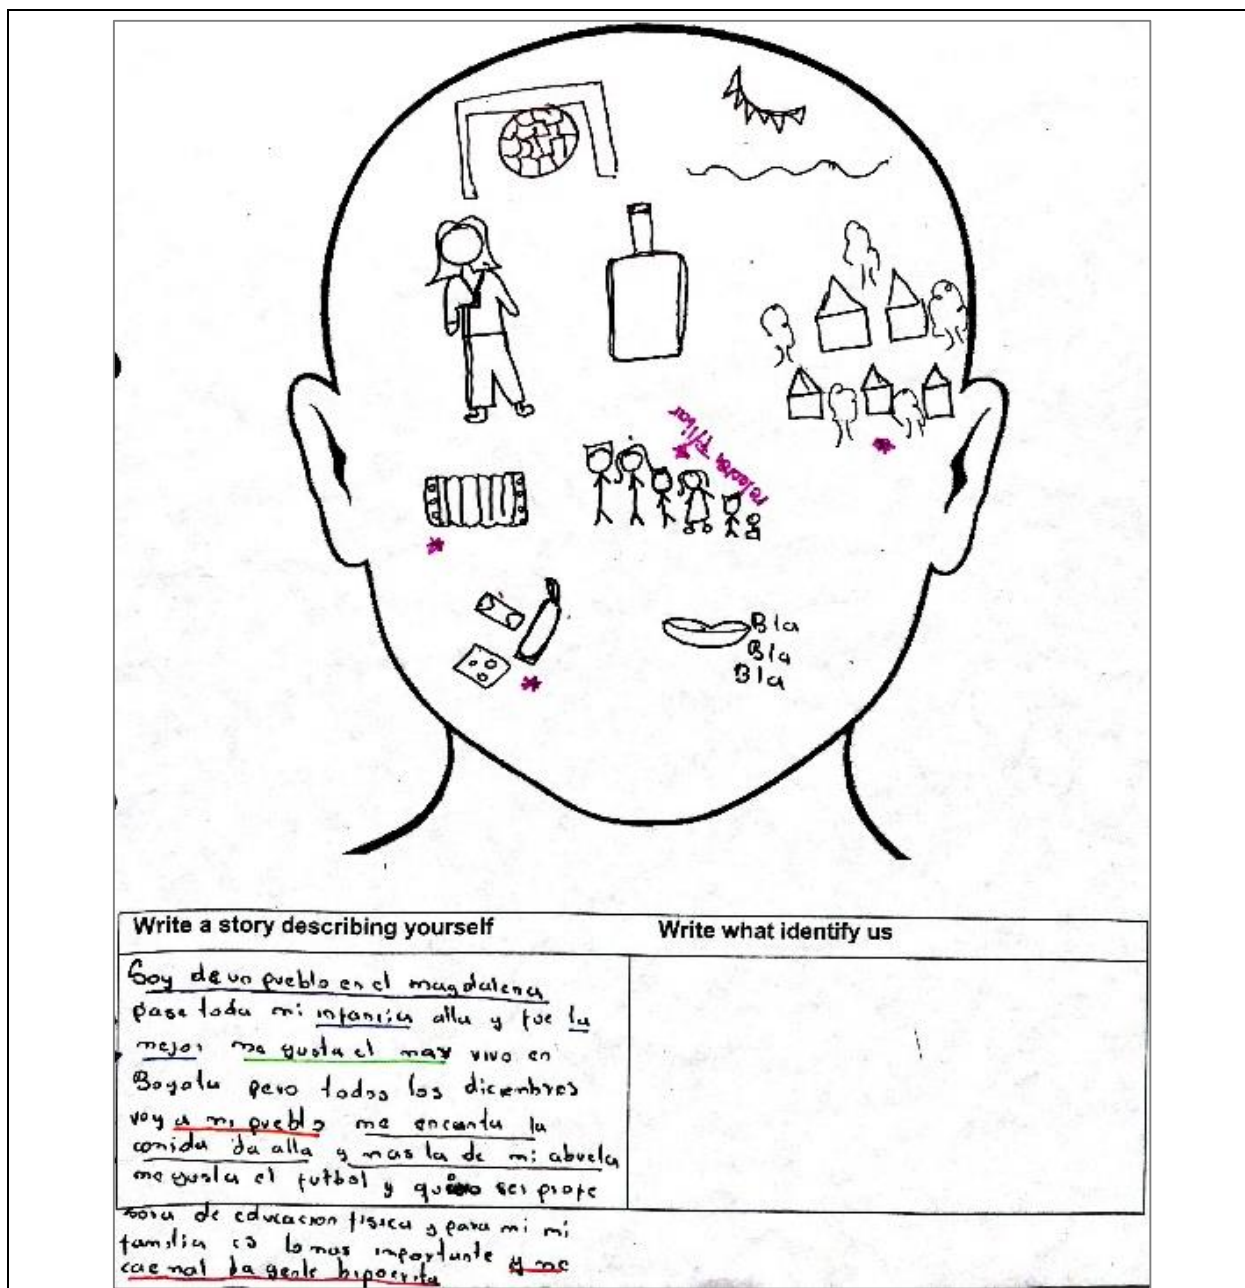 Bla
Bla
Bla
Write a story describing yourself
Write what identify us
Soy de un pueblo en el magdalena
pase toda mi infancia alla y fue la
mejor me gusta el mar vivo en
Bogota pero todos los diciembres
voy a mi pueblo me encanta la
comida da alla y mas la de mi abuela
me gusta el futbol y quiero ser profe
sora de educacion fisica y para mi mi
familia es lo mas importante y me
cae mal la gente hipocrita